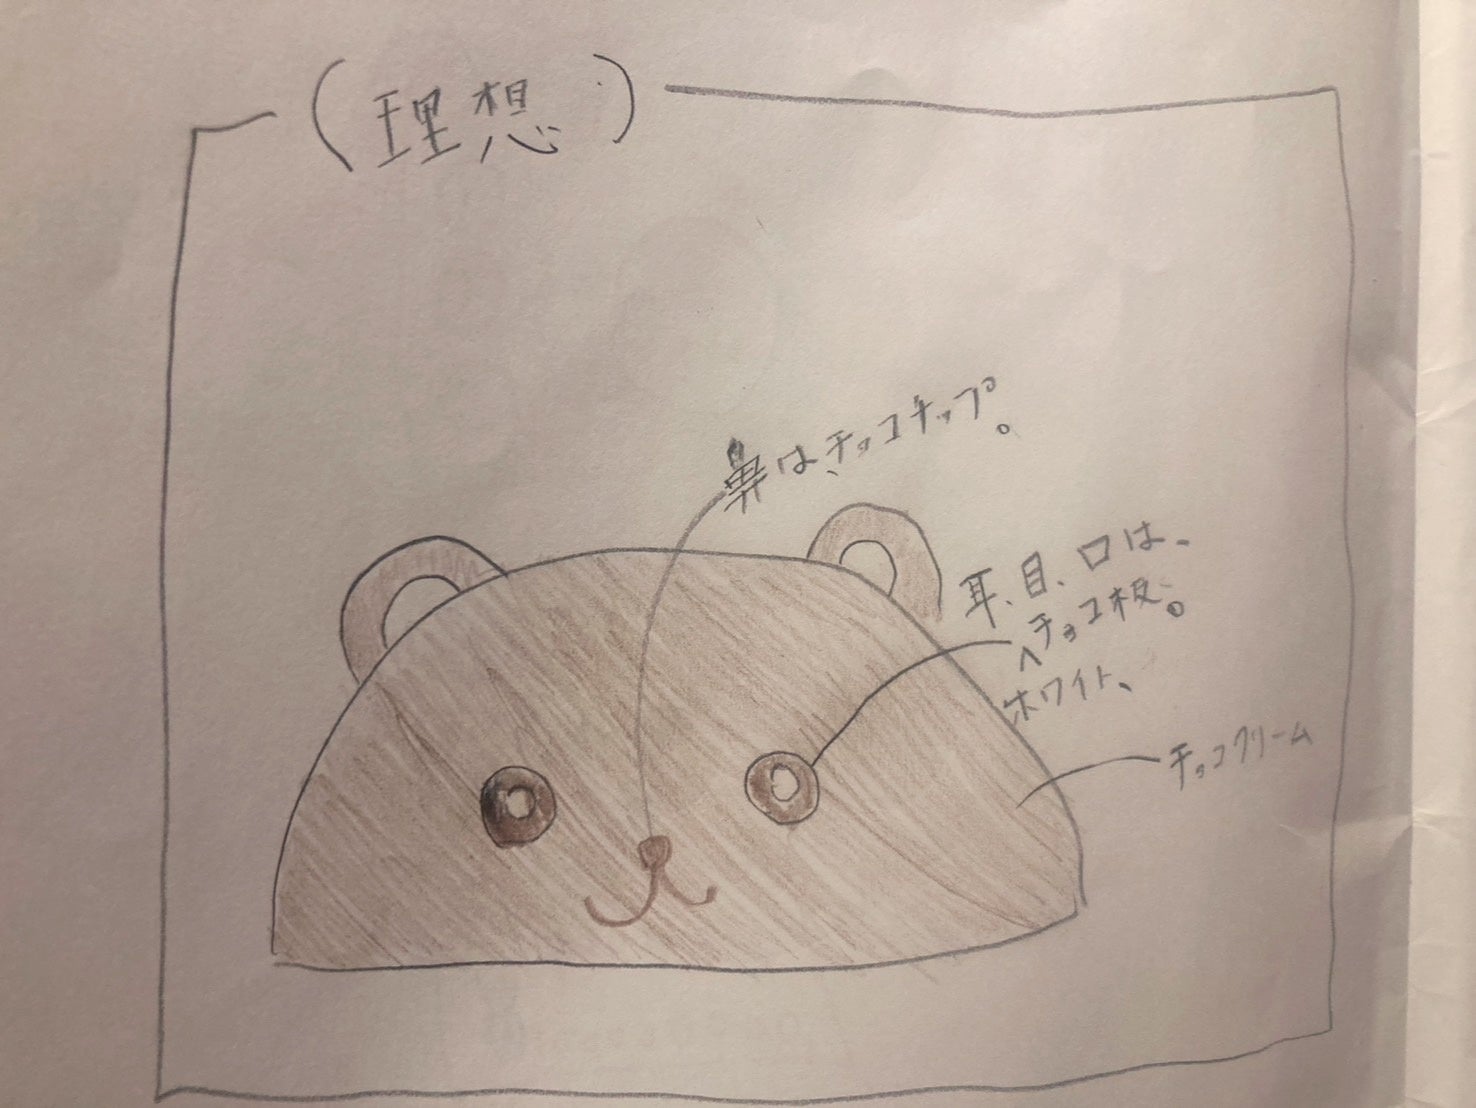 (理想)
鼻は、チョコチップ。
耳、目、口は、
チョコ板。
ホワイト、
チョコクリーム